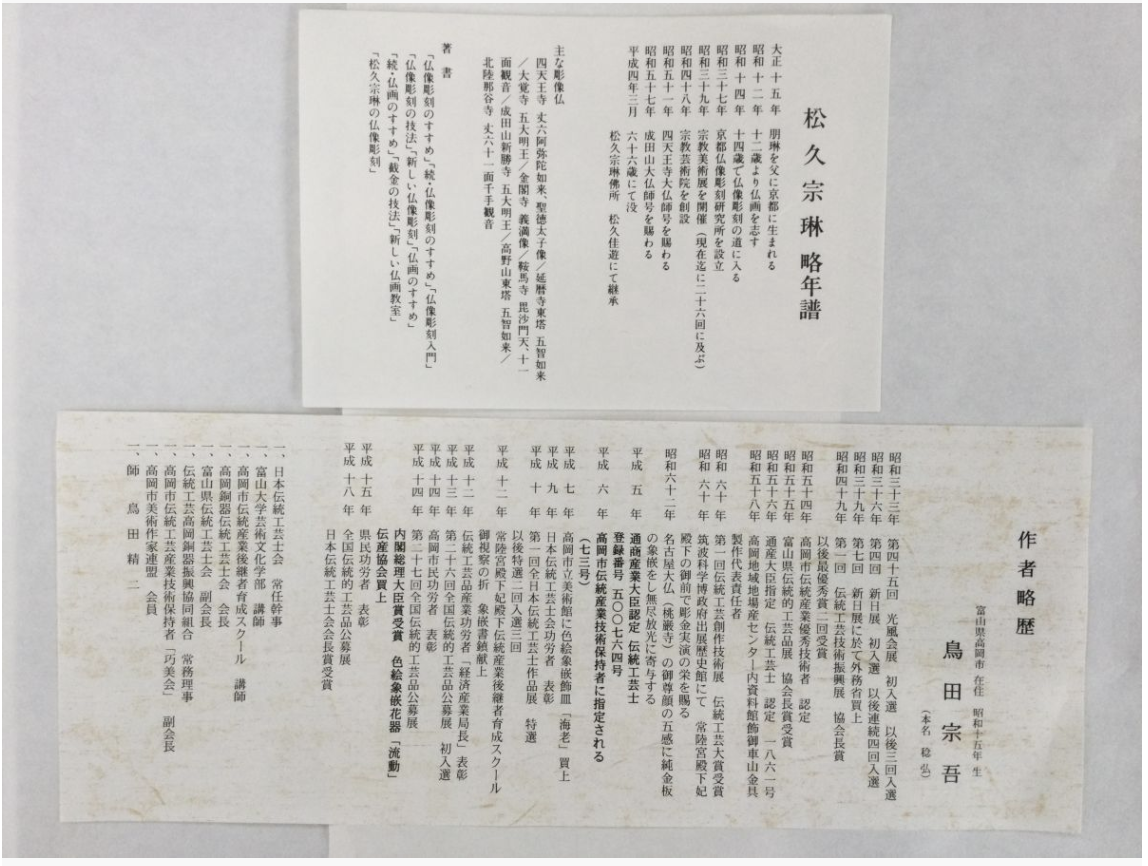 松久宗琳略年譜
大正十五年 朋琳を父に京都に生まれる
昭和十二年 十二歳より仏画を志す
昭和十四年 十四歳で仏像彫刻の道に入る
昭和三十七年 京都仏像彫刻研究所を設立
昭和三十九年 宗教美術展を開催(現在迄に二十六回に及ぶ)
昭和四十八年 宗教芸術院を創設
昭和五十一年 四天王寺大仏師号を賜わる
昭和五十七年 成田山大仏師号を賜わる
平成四年三月 六十六歳にて没
松久宗琳佛所 松久佳遊にて継承
主な彫像仏
四天王寺 丈六阿弥陀如来、聖徳太子像/延暦寺東塔 五智如来
/大覚寺 五大明王/金閣寺 義満像/鞍馬寺 毘沙門天、十一
面観音/成田山新勝寺 五大明王/高野山東塔 五智如来/
北陸那谷寺 丈六十一面千手観音
著書
「仏像彫刻のすすめ」「続・仏像彫刻のすすめ」「仏像彫刻入門」
「仏像彫刻の技法」「新しい仏像彫刻」「仏画のすすめ」
「続・仏画のすすめ」「截金の技法」「新しい仏画教室」
「松久宗琳の仏像彫刻」
作者略歴
富山県高岡市 在住 昭和十五年 生
鳥田宗吾
(本名 稔弘)
昭和三十三年 第四十五回 光風会展 初入選 以後三回入選
昭和三十六年 第四回 新日展 初入選 以後連続四回入選
昭和三十九年 第七回 新日展に於て外務省買上
昭和四十九年 第一回 伝統工芸技術振興展 協会長賞
以後最優秀賞二回受賞
昭和五十四年 高岡市伝統産業優秀技術者 認定
昭和五十五年 富山県伝統的工芸品展 協会長賞受賞
昭和五十六年 通産大臣指定 伝統工芸士 認定 一八六一号
昭和五十八年 高岡地域地場産センター内資料館飾御車山金具
製作代表責任者
昭和六十年 第一回伝統工芸創作技術展 伝統工芸大賞受賞
昭和六十年 筑波科学博政府出展歴史館にて 常陸宮殿下妃
殿下の御前で彫金実演の栄を賜る
昭和六十二年 名古屋大仏(桃巌寺)の御尊顔の五感に純金板
の象嵌をし無尽放光に寄与する
平成五年 通商産業大臣認定 伝統工芸士
登録番号 五〇〇七六四号
平成六年 高岡市伝統産業技術保持者に指定される
(七三号)
平成七年 高岡市立美術館に色絵象嵌飾皿「海老」買上
平成九年 日本伝統工芸士会功労者 表彰
平成十年 第一回全日本伝統工芸士作品展 特選
以後特選二回入選三回
平成十二年 常陸宮殿下妃殿下伝統産業後継者育成スクール
御視察の折 象嵌書鎮献上
平成十二年 伝統工芸品産業功労者「経済産業局長」表彰
平成十三年 第二十六回全国伝統的工芸品公募展 初入選
平成十四年 高岡市民功労者 表彰
平成十四年 第二十七回全国伝統的工芸品公募展
内閣総理大臣賞受賞 色絵象嵌花器「流動」
伝産協会買上
平成十五年 県民功労者 表彰
平成十八年 全国伝統的工芸品公募展
日本伝統工芸士会会長賞受賞
一、日本伝統工芸士会 常任幹事
一、富山大学芸術文化学部 講師
一、高岡市伝統産業後継者育成スクール 講師
一、高岡銅器伝統工芸士会 会長
一、富山県伝統工芸士会 副会長
一、伝統工芸高岡銅器振興協同組合 常務理事
一、高岡市伝統工芸産業技術保持者「巧美会」 副会長
一、高岡市美術作家連盟 会員
一、師 鳥田精二